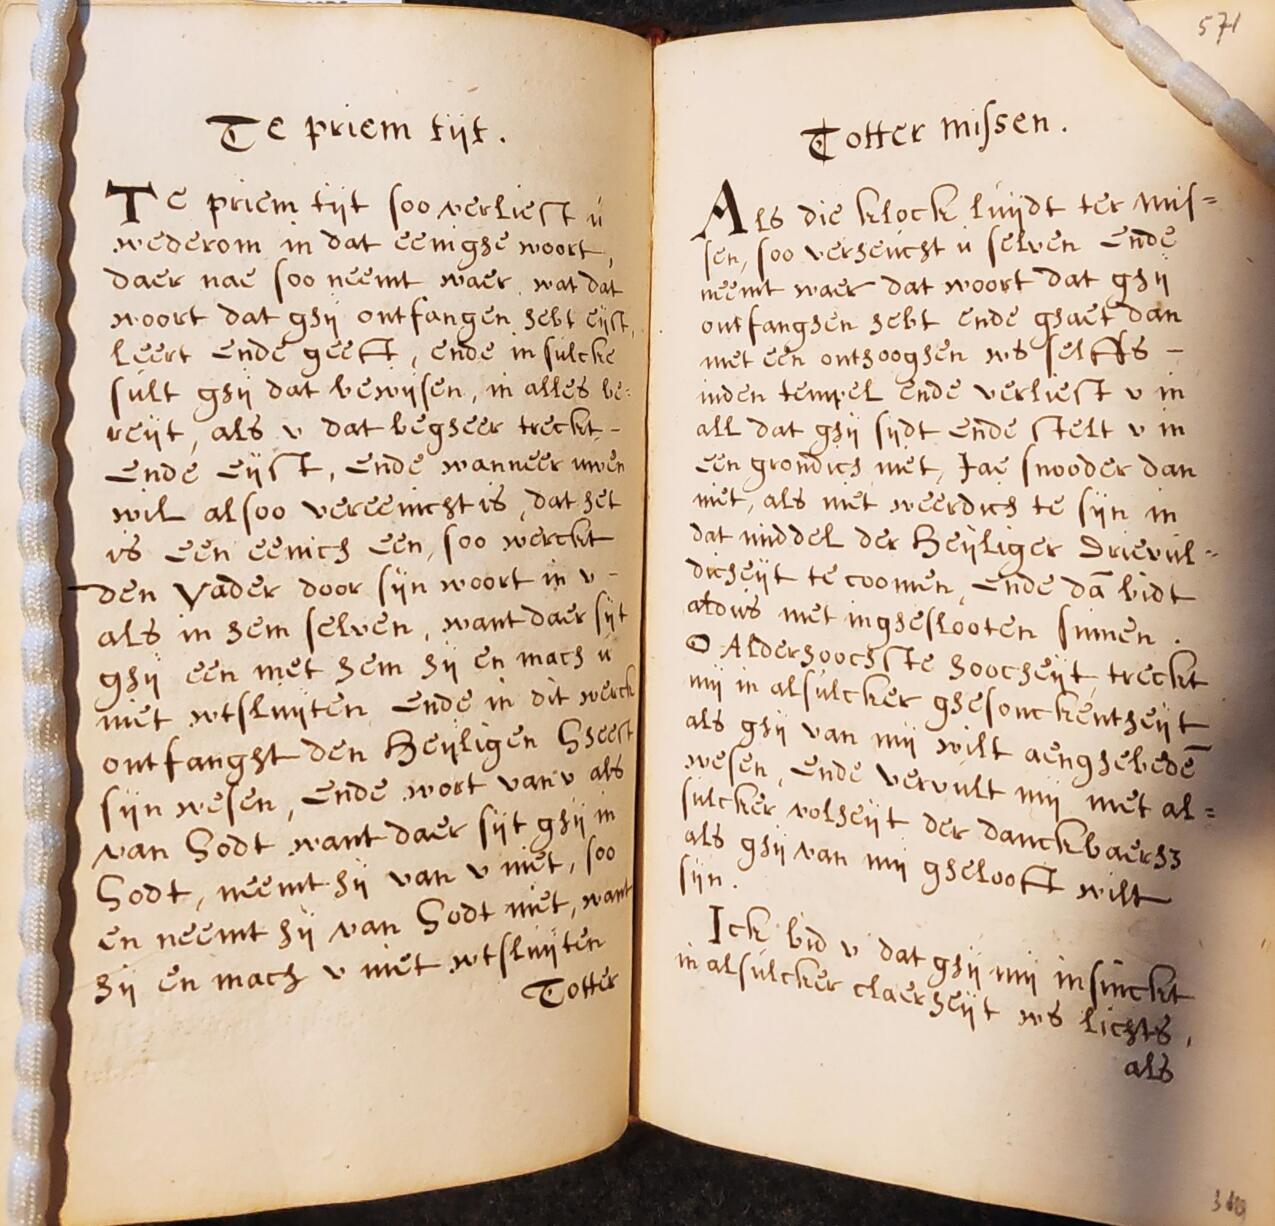 Te priem tijt.
Te priem tijt soo verliest ú
wederom in dat eenighe woort,
daer nae soo neemt waer wat dat
woort dat ghij ontfangen hebt eijst,
leert ende geeft, ende in súlcke
súlt ghij dat bewijsen, in alles be:
reijt, als v dat begheer treckt -
ende eijst, ende wanneer uwen
wil alsoo vereenicht is, dat het
is een eenich een, soo werckt
den Vader door sijn woort in v -
als in hem selven, want daer sijt
ghij een met hem hij en mach ú
niet wtslúijten ende in dit werck
ontfanght den Heijligen Gheest
sijn wesen, ende wort van v als
van Godt want daer sijt ghij in
Godt, neemt hij van v niet, soo
en neemt hij van Godt niet, want
hij en mach v niet wtslúijten
Totter
571
Totter missen.
Als die klock lúijdt ter mis=
sen, soo versúcht ú selven ende
neemt waer dat woort dat ghij
ontfanghen hebt ende ghaet dan
met een onthooghen ws selffs -
inden tempel ende verliest v in
all dat ghij sijdt ende stelt v in
een grondich niet, Jae snooder dan
niet, als niet weerdich te sijn in
dat middel der Heijliger Drievúl=
dicheijt te coomen, ende dā bidt
aldús met ingheslooten sinnen.
O Alderhoochste hoocheijt, treckt
mij in alsúlcker ghesonckentheijt
als ghij van mij wilt aenghebedē
wesen, ende vervúlt mij met al=
súlcker volheijt der danckbaerh3
als ghij van mij ghelooft wilt
sijn.
Ick bid v dat ghij mij insinckt
in alsúlcker claerheijt ws lichts,
als